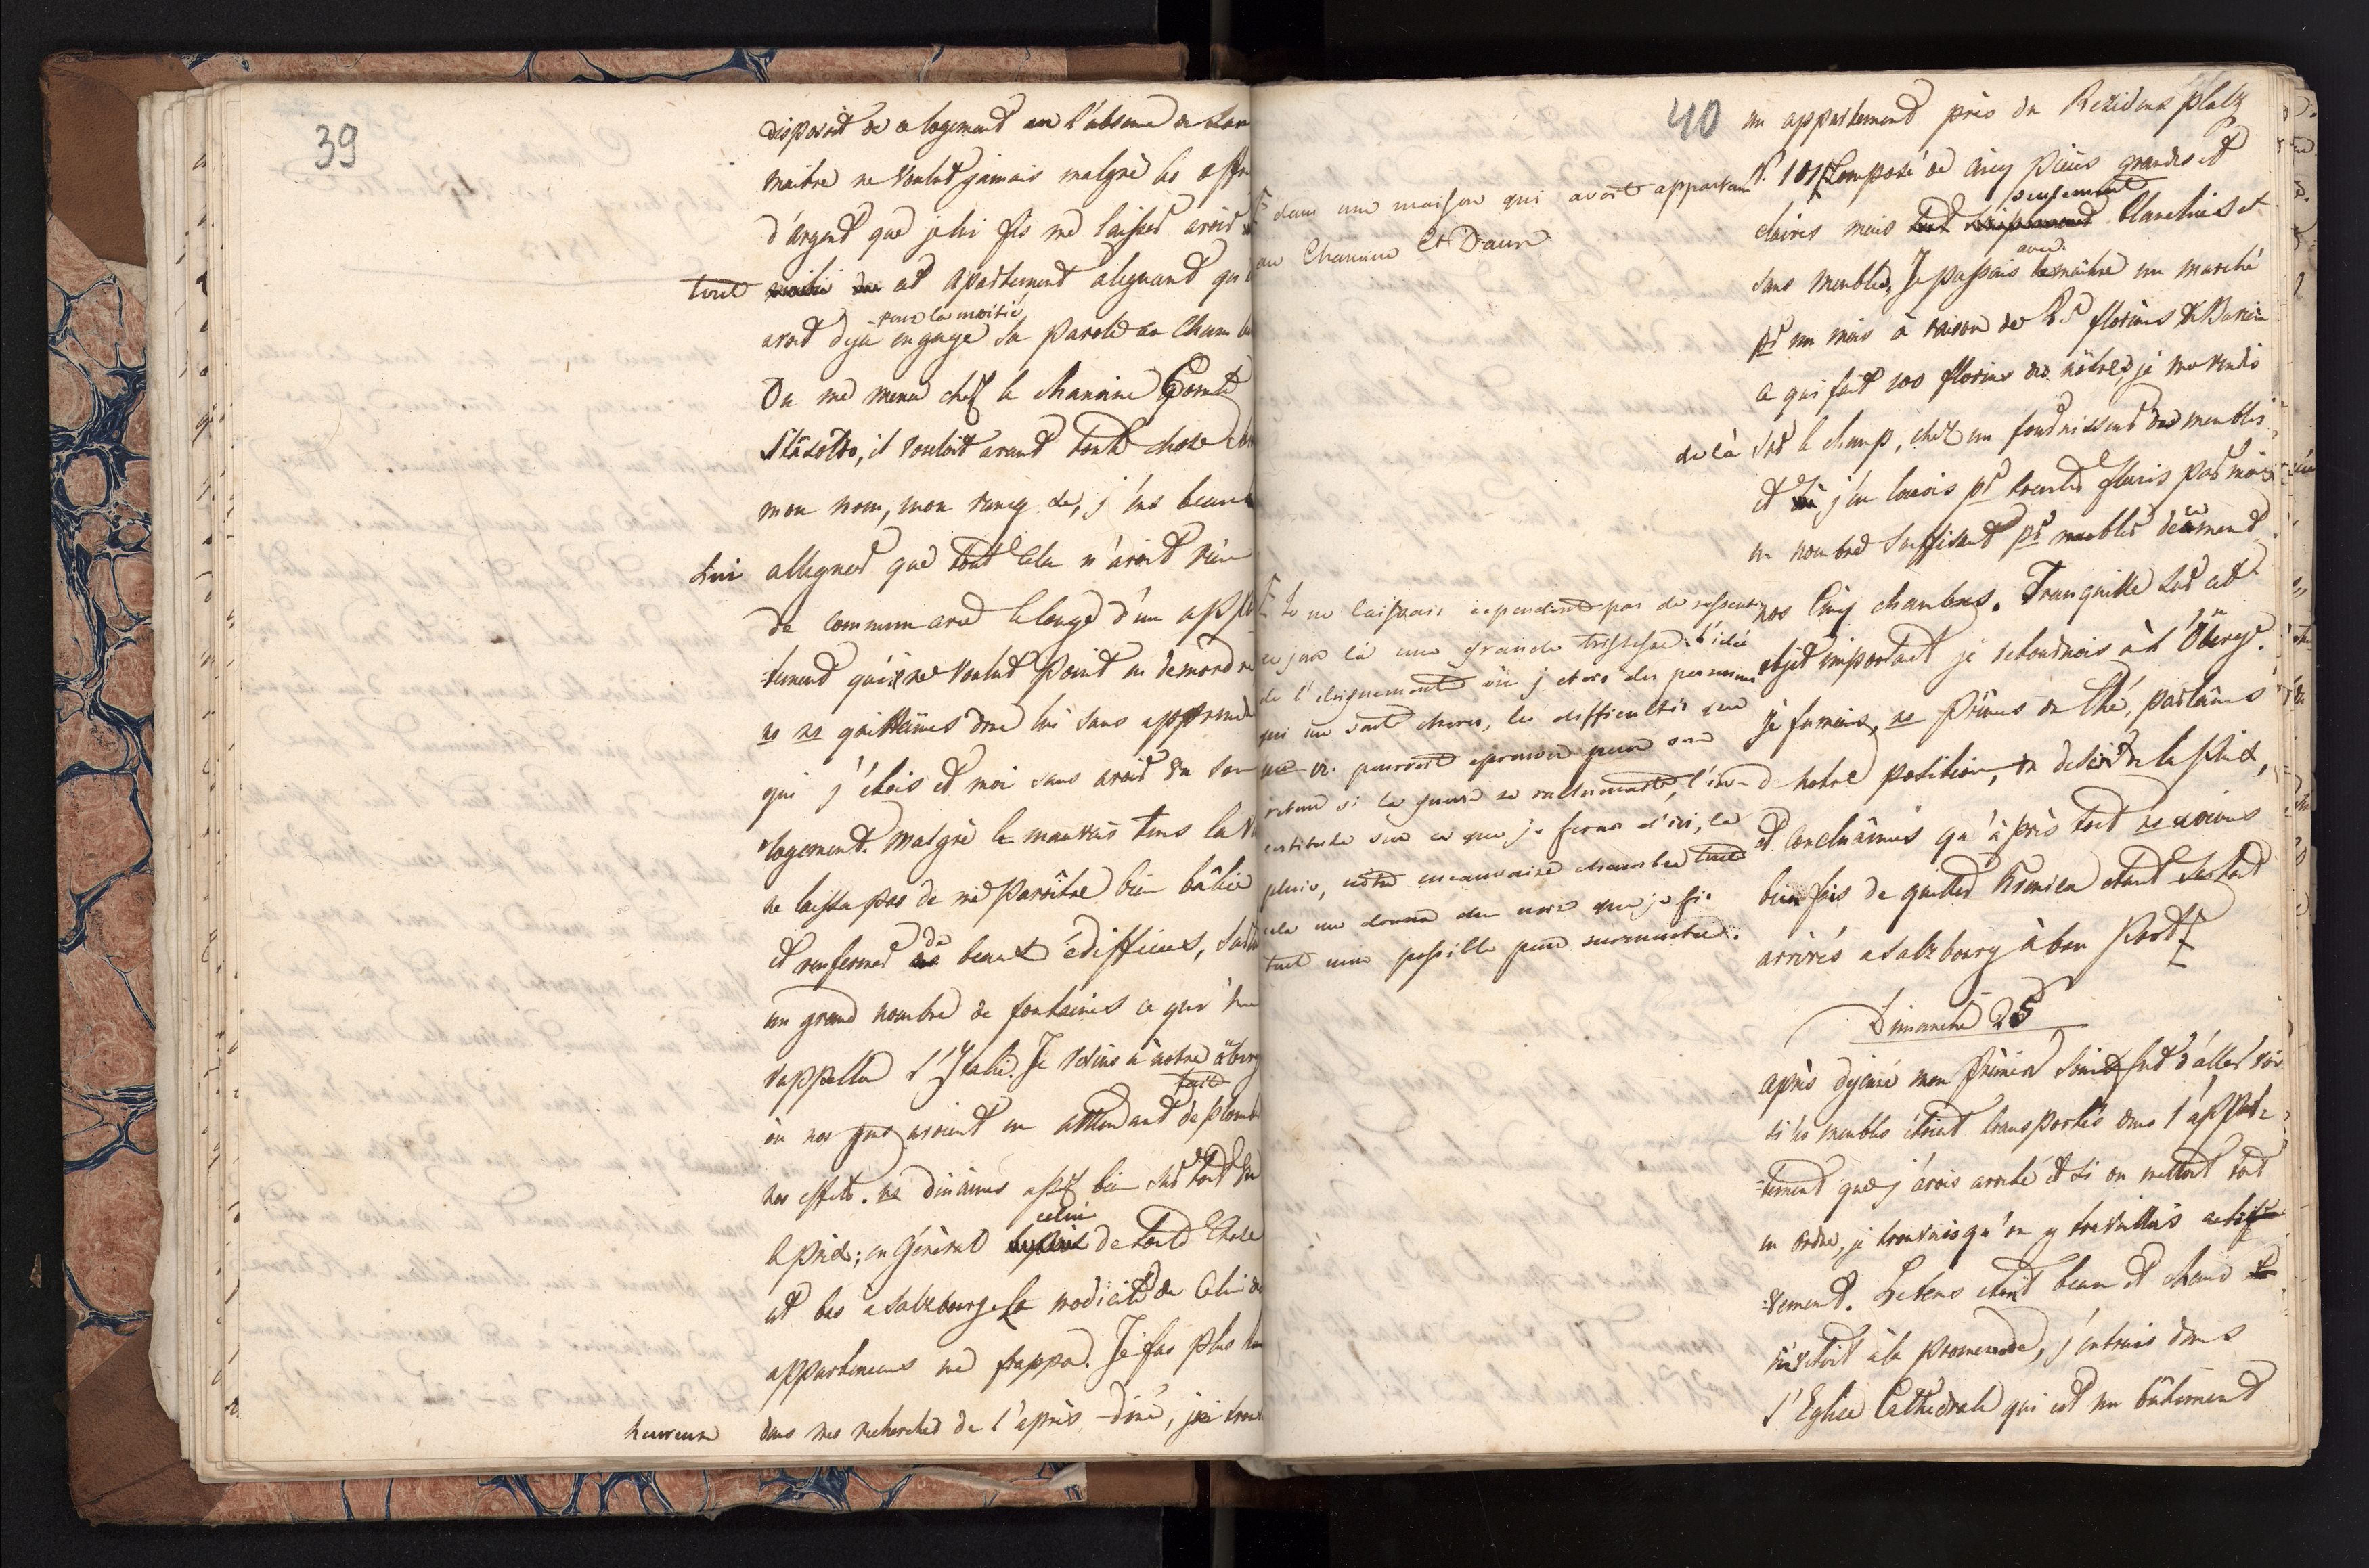 39
disposoit de ce logement en l'absence de son
maitre ne voulut jamais malgré les offr
d'argent que je lui fis me laisser avoir
tout cet apartement aleguant qu'
pour la moitié
avoit déja engagé sa parole au Cham
On me mena chez le chanoine Comte
Stasoldo, il vouloit avant toute chose
mon nom, mon rang &c, j'eus beau
lui alleguer que tout cela n'avoit rien
de commun avec le louage d'un appar
-tement qu'il ne voulut point en demordre
ns ns quittâmes donc lui sans apprendre
qui j'étois et moi sans avoir vu son
logement. Malgré le mauvais tems la
ne laissa pas de me paroître bien bâtie
et renfermer de beaux édiffices, surtout
un grand nombre de fontaines ce qui me
rappella l'Italie. Je revins à notre auberg
fait
où nos gens avoient en attendant deplomb
nos effets. ns dinâmes assez bien surtout vu
le prix; en général celui de toute chose
est bas a Salzbourg la modicité de celui des
appartemens me frappa. Je fus plus
heureux dans mes recherches de l'après-diné, j'ai
40
un appartement près du Residenz platz
N° 101 Composé de cinq pièces grandes et
claires mais seulement blanchies et
sans meubles, Je passois avec le maître un marché
pr un mois à raison de 25 florins
ce qui fait 100 florins des nôtres, je me rendis
de là sur le champ, chez un fournisseur des meubles
et j'en louois pr trente florins par mois
un nombre suffisant pr meubler décemment
nos cinq chambres. Tranquille sur cet
objet important je retournois à l'Oberge.
je fumois, ns prîmes du thé, parlâmes
de notre position, du desir de la paix,
et conclûmes qu'après tout ns avions
bien fais de quitter étant surtout
arrivés a Salzbourg à bon port
dans une maison qui avoit appartenu
au Chanoine Ct Daun
Je ne laissais cependant pas de ressentir
ce jour là une grande tristesse. l'idée
de l'eloignement où j'etois des personnes
qui me sont cheres, les difficultés que
pourroit eprouver pour son
retour si la guerre se rallumoit, l'in-
certitude sur ce que je ferai d'ici, la
pluie, notre mauvaise chambre tout
cela me donna du noir que je fis
tout mon possible pour surmonter.
Dimanche 25
après dejeuné mon premier soin fut d'aller voir
si les meubles étoient transportés dans l'appar-
-tement que j'avois arreté et si on mettoit tout
en ordre, je trouvois qu'on y travailloit acti
-vement. Le tems etoit beau et chaud
invitoit à la promenade, j'entrais dans
l'Eglise Cathédrale qui est un bâtiment